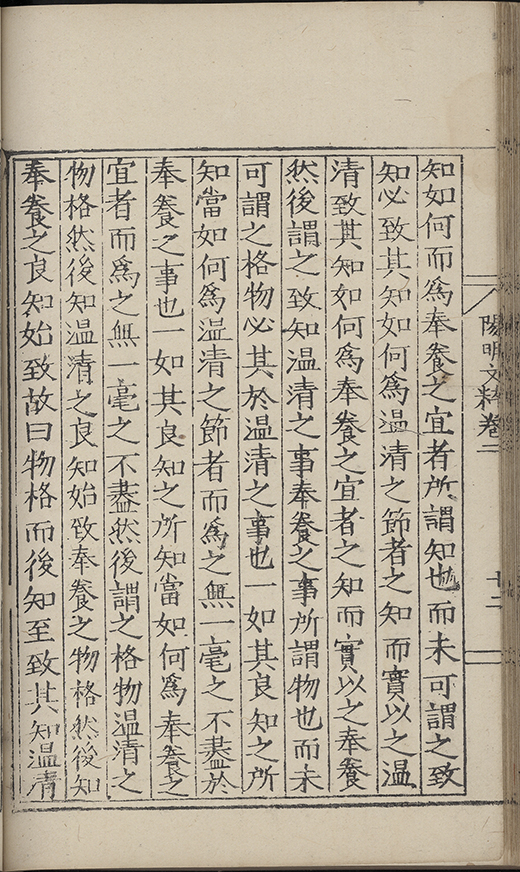 陽明文粹卷二
十二
知如何而爲奉養之宜者所謂知也而未可謂之致
知必致其知如何爲温清之節者之知而實以之温
清致其知如何爲奉養之宜者之知而實以之奉養
然後謂之致知温清之事奉養之事所謂物也而未
可謂之格物必其於温清之事也一如其良知之所
知當如何爲温清之節者而爲之無一毫之不盡於
奉養之事也一如其良知之所知當如何爲奉養之
宜者而爲之無一毫之不盡然後謂之格物温清之
物格然後知温清之良知始致奉養之物格然後知
奉養之良知始致故曰物格而後知至致其知温清